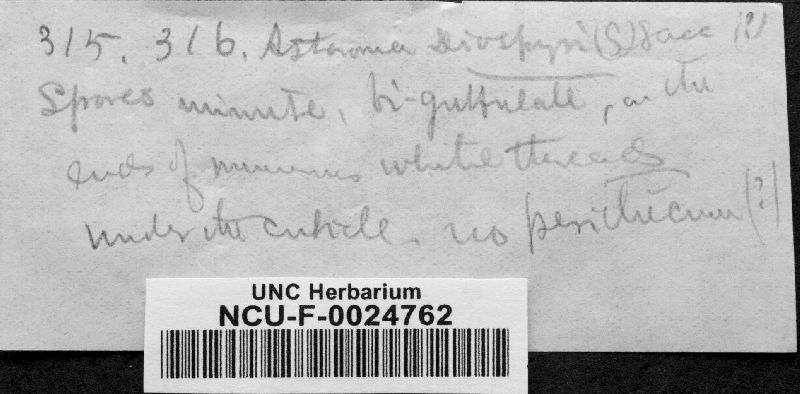 315. 316. Asteroma Diospyri (S) Sacc (?)
Spores minute, bi-guttulate, on the
ends of numerous white threads
under the cuticle. no perithecium (?)
UNC Herbarium
NCU-F-0024762